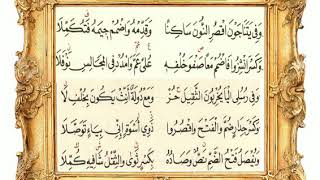 وَفِي يَتَنَاجَوْنَ اقْصُرِ النُّونَ سَاكِنًا وَقَدِّمْهُ وَاضْمُمْ جِيمَهُ فَتُكَمِّلَا
وَكَسْرَ انْشِزُوا فَاضْمُمْ مَعًا صَفْوَ خُلْفِهِ عُلًا عَمَّ وَامْدُدْ فِي الْمَجَالِسِ نَوْفَلَا
وَفِي رُسُلِي الْيَا يُخْرِبُونَ الثَّقِيلَ حُزْ وَمَعْ دُولَةً أَنِّثْ يَكُونَ بِخُلْفِ لَا
وَكَسْرَ جِدَارٍ ضُمَّ وَالْفَتْحَ وَاقْصُرُوا ذَوِي أُسْوَةٍ إِنِّي بِيَاءٍ تَوَصَّلَا
وَيُفْصَلُ فَتْحُ الضَّمِّ نَصٌّ وَصَادُهُ بِكَسْرٍ ثَوَى وَالثِّقْلُ شَافِيهِ كُمِّلَا